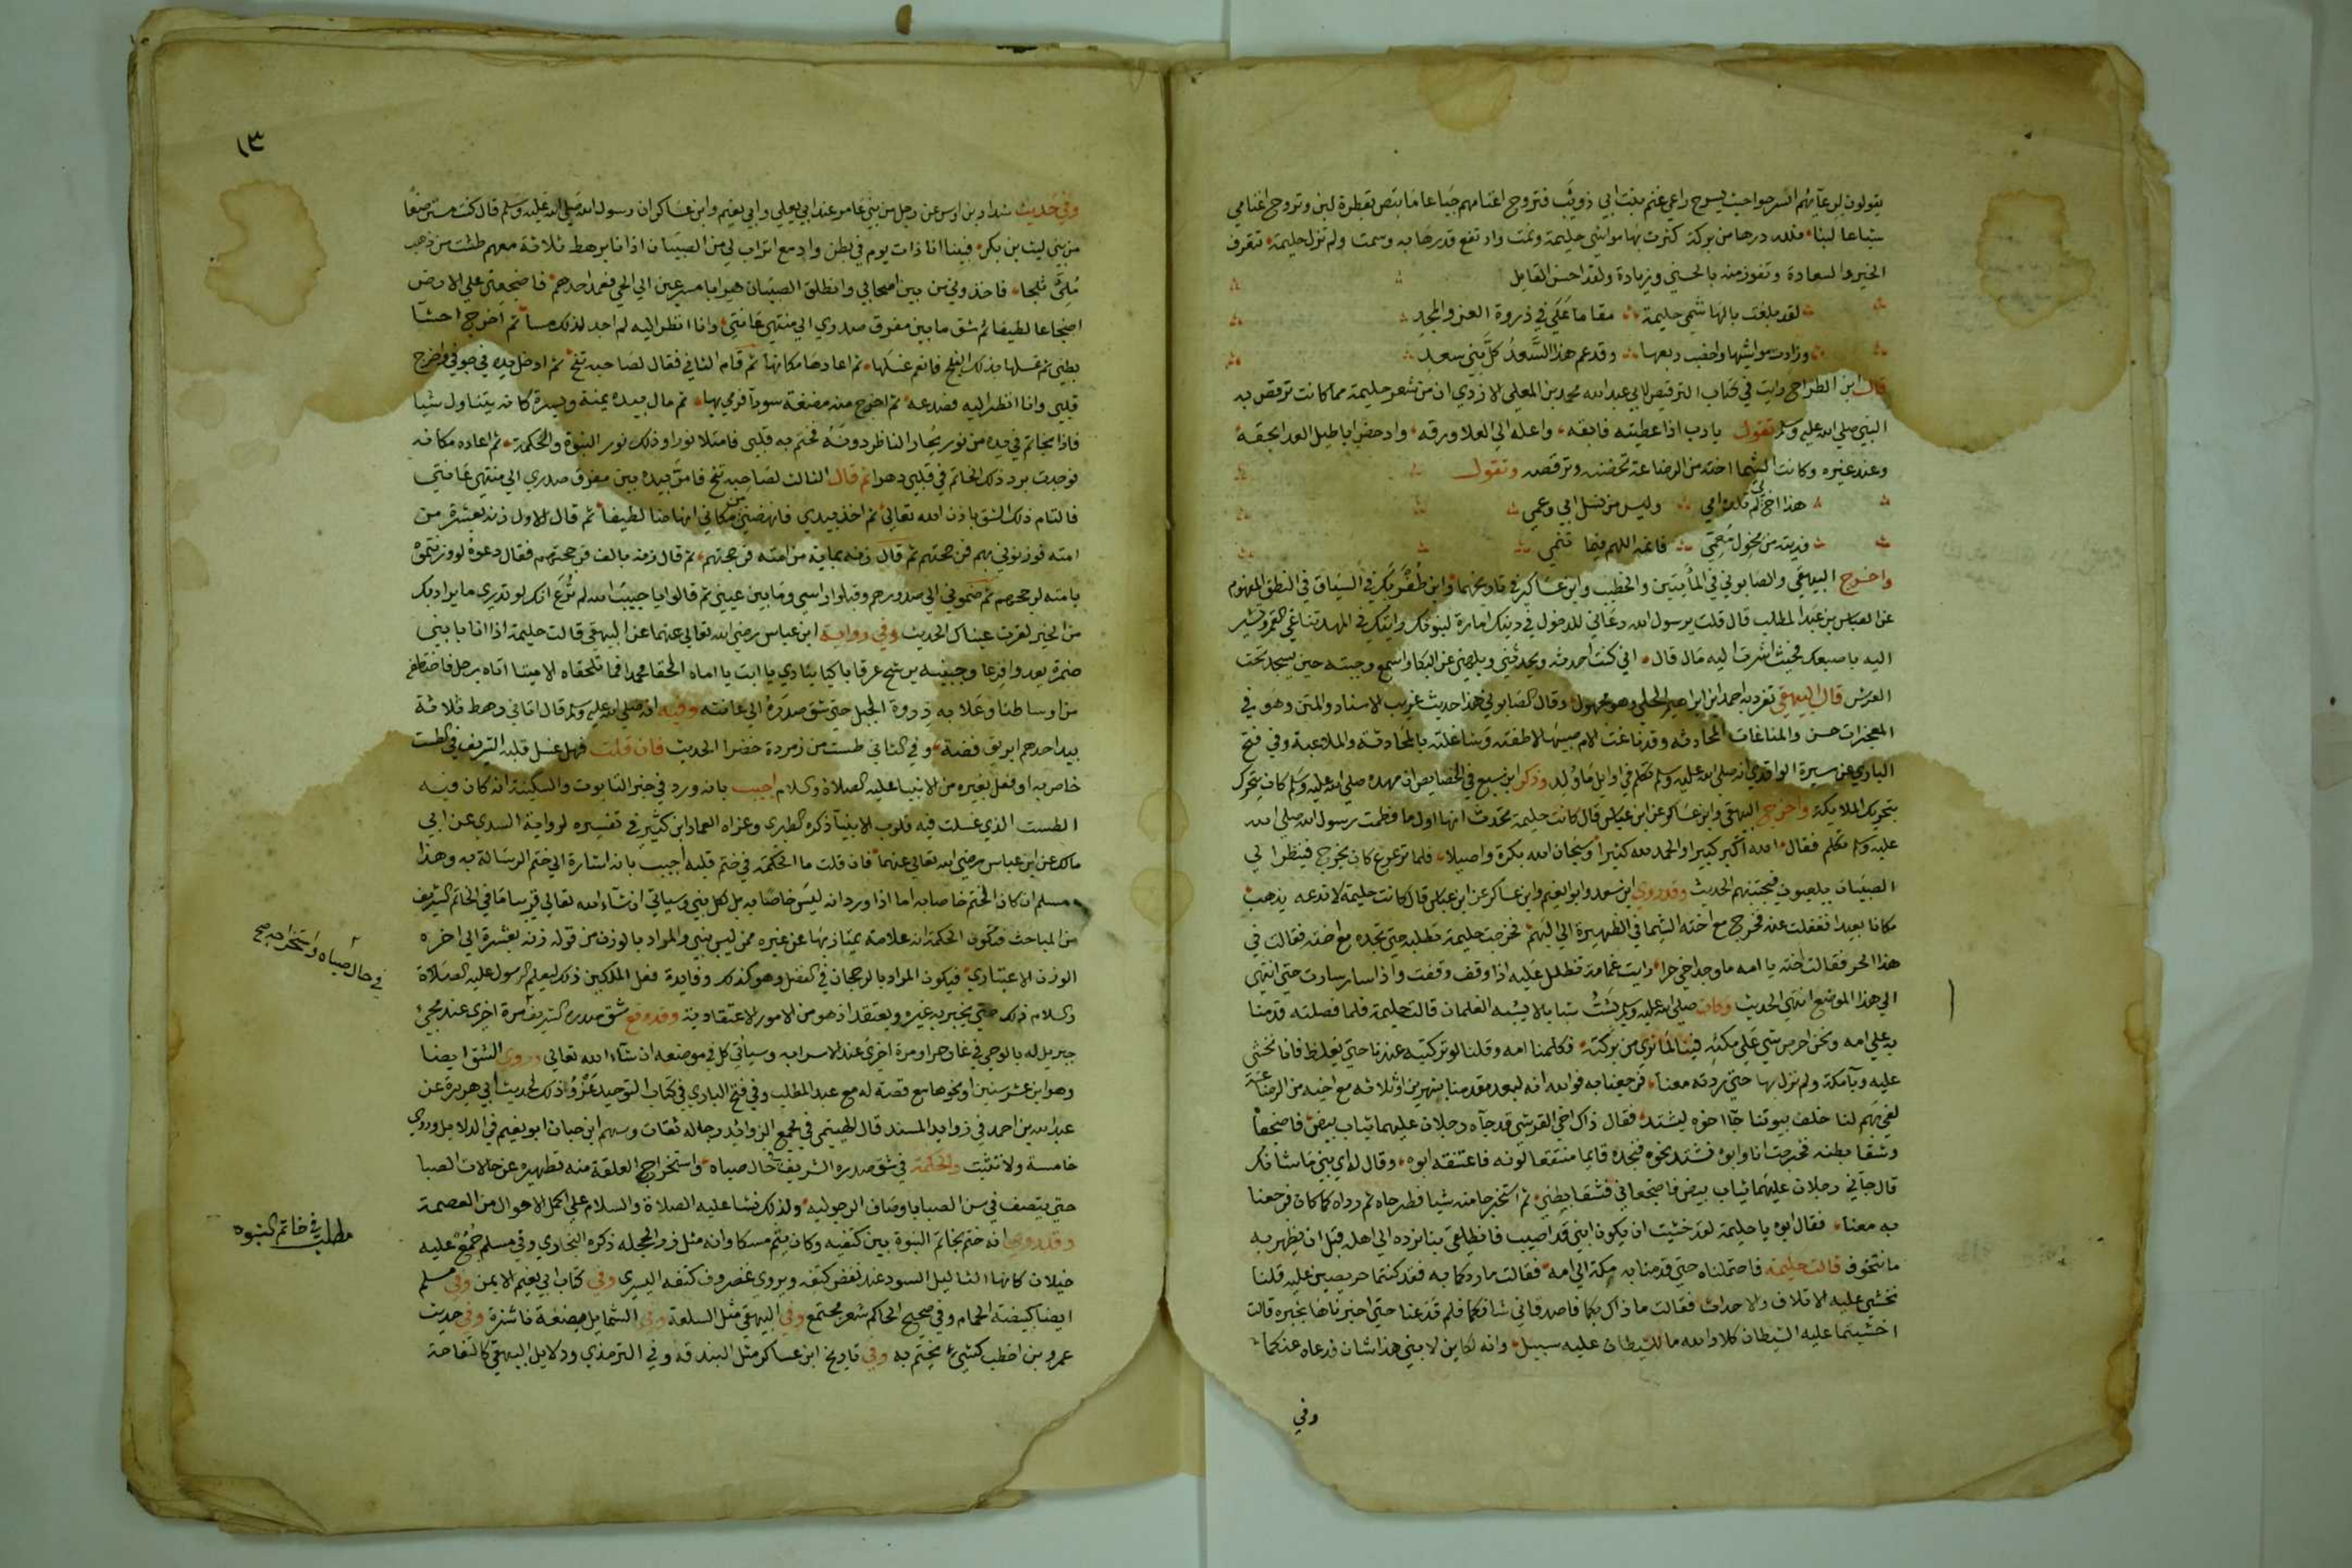 يقولون لرعاتهم اسرحوا حيث يسرح راعي غنم بنت ابي ذويب فتروح اغنامهم جياعا ما تبض بقطرة لبن وتروح اغنامي
شباعا لبنا فلله درها من بركة كثرت بها مواشي حليمة ونمت وارتفع قدرها به وسمت ولم تزل حليمة تتعرف
الخير والسعادة وتفوز منه بالحسني وزيادة ولقد احسن القايل
لقد بلغت بالهاشمي حليمة مقاما علي في ذروة العز والمجد
وزادت مواشيها واخصب ربعها وقد عم هذا السعد كل بني سعد
قال ابن الطراح رايت في كتاب الترقيص لابي عبد الله محمد بن المعلي الازدي ان من شعر حليمة مما كانت ترقص به
النبي صلي الله عليه وسلم تقول يا رب اذا اعطيته فابقه واعله الي العلا ورقه وادحض اباطيل العدا بحقه
وعند غيره وكانت الشيما اخته من الرضاعة تحضنه وترقصه وتقول
هذا اخ لي لم تلده امي وليس من نسل ابي وعمي
فديته من مخول معمي فانمه اللهم فيما تنمي
واخرج البيهقي والصابوني في المأيتين والخطيب وابن عساكر في تاريخهما وابن طغربك في السياق في النطق المفهوم
عن العباس بن عبد المطلب قال قلت يرسول الله دعاني للدخول في دينك امارة لنبوتك رايتك في المهد تناغي القمر وتشير
اليه باصبعك فحيث اشرت اليه مال قال اني كنت احدثه ويحدثني ويلهيني عن البكا واسمع وجبته حين يسجد تحت
العرش قال البيهقي تفرد به احمد ابن ابراهيم الحلبي وهو مجهول وقال الصابوني هذا حديث غريب الاسناد والمتن وهو في
المعجزات حسن والمناغات المحادثه وقد ناغت الام صبيها لاطفته وشاغلته بالمحادثة والملاعبة وفي فتح
الباري عن سيرة الواقدي انه صلي الله عليه وسلم تكلم في اوايل ما ولد وذكر ابن سبع في الخصايص ان مهده صلي الله عليه وسلم كان يتحرك
بتحريك الملايكة واخرج البيهقي وابن عساكر عن ابن عباس قال كانت حليمة تحدث انها اول ما فطمت رسول الله صلي الله
عليه وسلم تكلم فقال الله اكبر كبيرا والحمد لله كثيرا وسبحان الله بكرة واصيلا فلما ترعرع كان يخرج فينظر الي
الصبيان يلعبون فيجتنبهم الحديث وقد روي ابن سعد وابو نعيم وابن عساكر عن ابن عباس قال كانت حليمة لا تدعه يذهب
مكانا بعيدا فغفلت عنه فخرج مع اخته الشيما في الظهيرة الي البهم فخرجت حليمة تطلبه حتي تجده مع اخته فقالت في
هذا الحر فقالت اخته يا امه ما وجد اخي حرا رايت غمامة تظلل عليه اذا وقف وقفت واذا سار سارت حتي انتهي
الي هذا الموضع انتهي الحديث وكان صلي الله عليه وسلم يشب شبابا لا يشبه الغلمان قالت حليمة فلما فصلته قدمنا
به علي امه ونحن احرص شي علي مكثه فينا لما نري من بركته فكلمنا امه وقلنا لو تركتيه عندنا حتي يغلظ فانا نخشي
عليه وبآ مكة ولم نزل بها حتي ردته معنا فرجعنا به فوالله انه لبعد مقدمنا بشهرين او ثلاثه مع اخيه من الرضاعة
لفي بهم لنا خلف بيوتنا جآ اخوه يشتد فقال ذاك اخي القرشي قد جآه رجلان عليهما ثياب بيض فاضجعاه
وشقا بطنه فخرجت انا وابوه نشتد نحوه فنجده قايما منتقعا لونه فاعتنقه ابوه وقال له اي بني ما شانك
قال جاني رجلان عليهما ثياب بيض فاضجعاني فشقا بطني ثم استخرجا منه شيا فطرحاه ثم رداه كما كان فرجعنا
به معنا فقال ابوه يا حليمة لقد خشيت ان يكون ابني قد اصيب فانطلقي بنا نرده الي اهله قبل ان يظهر به
ما نتخوف قالت حليمة فاحتملناه حتي قدمنا به مكة الي امه فقالت ما ردكما به فقد كنتما حريصين عليه قلنا
نخشي عليه الاتلاف والاحداث فقالت ماذاك بكما فاصدقاني شانكما فلم تدعنا حتي اخبرناها بخبره قالت
اخشيتما عليه الشيطان كلا والله ما للشيطان عليه سبيل وانه لكاين لابني هذا شان فدعاه عنكما
وفي
١٣
وفي حديث شداد بن اوس عن رجل من بني عامر عند ابي يعلي وابي نعيم وابن عساكر ان رسول الله صلي الله عليه وسلم قال كنت مسترضعا
من بني ليث بن بكر فبينا انا ذات يوم في بطن واد مع اتراب لي من الصبيان اذ انا برهط ثلاثة معهم طشت من ذهب
ملئ ثلجا فاخذوني من بين اصحابي وانطلق الصبيان هرابا مسرعين الي الحي فعمد احدهم فاضجعني علي الارض
اضجاعا لطيفا ثم شق ما بين مفرق صدري الي منتهي عانتي وانا انظر اليه لم اجد لذلك مسا ثم اخرج احشا
بطني ثم غسلها بذلك الثلج فانعم غسلها ثم اعادها مكانها ثم قام الثاني فقال لصاحبه تنح ثم ادخل يده في جوفي واخرج
قلبي وانا انظر اليه فصدعه ثم اخرج منه مضغة سودآ فرمي بها ثم مال بيده يمنة ويسرة كانه يتناول شيا
فاذا بخاتم في يده من نور يحار الناظر دونه فختم به قلبي فامتلا نورا وذلك نور النبوة والحكمة ثم اعاده مكانه
فوجدت برد ذلك الخاتم في قلبي دهرا ثم قال الثالث لصاحبه تنح فامر بيده بين مفرق صدري الي منتهي عانتي
فالتام ذلك الشق باذن الله تعالي ثم اخذ بيدي فانهضني من مكاني انهاضا لطيفا ثم قال للاول زنه بعشرة من
امته فوزنوني بهم فرجحتهم ثم قال زنه بماية من امته فرجحتهم ثم قال زنه بالف فرجحتهم فقال دعوه لو وزنتموه
بامته لرجحهم ثم ضموني الي صدورهم وقبلوا راسي وما بين عيني ثم قالوا يا حبيب الله لم ترع انك لو تدري ما يراد بك
من الخير لقرت عيناك الحديث وفي رواية ابن عباس رضي الله تعالي عنهما عن البيهقي قالت حليمة اذا انا بابني
ضمرة يعدو فزعا وجبينه يرشح عرقا باكيا ينادي يا ابت يا اماه الحقا محمدا فما تلحقاه الا ميتا اتاه رجل فاختطفه
من اوساطنا وعلا به ذروة الجبل حتي شق صدره الي عانته وفيه انه صلي الله عليه وسلم قال اتاني رهط ثلاثة
بيد احدهم ابريق فضة وفي الثاني طست من زمردة خضرا الحديث فان قلت فهل غسل قلبه الشريف في الطست
خاص به او فعل بغيره من الانبيا عليه الصلاة والسلام اجيب بانه ورد في خبر التابوت والسكينة انه كان فيه
الطست الذي غسلت فيه قلوب الانبيآ ذكره الطبري وعزاه العماد ابن كثير في تفسيره لرواية السدي عن ابي
مالك عن ابن عباس رضي الله تعالي عنهما فان قلت ما الحكمة في ختم قلبه اجيب بانه اشارة الي ختم الرسالة به وهذا
مسلم ان كان الختم خاصا به اما اذا ورد انه ليس خاصا به بل لكل نبي وسياتي ان شآء الله تعالي قريبا ما في الخاتم الشريف
من المباحث فتكون الحكمة انه علامة يمتاز بها عن غيره ممن ليس بنبي والمراد بالوزن من قوله زنه بعشرة الي اخره
الوزن الاعتباري فيكون المراد بالرجحان في الفضل وهو كذلك وفايدة فعل الملكين ذلك ليعلم الرسول عليه الصلاة
والسلام ذلك حتي يخبر به غيره ويعتقد اذ هو من الامور الاعتقادية وقد وقع شق صدره الشريف مرة اخري عند مجئ
جبريل له بالوحي في غار حرا ومرة اخري عند الاسرا به وسياتي كل في موضعه ان شآء الله تعالي وروي الشق ايضا
وهو ابن عشر سنين او نحوها مع قصة له مع عبد المطلب وفي فتح الباري في كتاب التوحيد عزو ذلك لحديث ابي هريرة عن
عبد الله بن احمد في زوايد المسند قال الهيثمي في مجمع الزوائد رجاله ثقات وسهم ابن حبان ابو نعيم في الدلايل وروي
خامسة ولا تثبت والحكمة في شق صدره الشريف في حال صباه واستخراج العلقة منه تطهيره عن حالات الصبا
حتي يتصف في سن الصبا باوصاف الرجوليه ولذلك نشا عليه الصلاة والسلام علي اكمل الاحوال من العصمة
وقد روي انه ختم بخاتم النبوة بين كتفيه وكان ينم مسكا وانه مثل زر الحجله ذكره البخاري وفي مسلم جمع عليه
خيلان كانها الثاليل السود عند نغض كتفه ويروي غضروف كتفه اليسري وفي كتاب ابي نعيم الايمن وفي مسلم
ايضا كبيضة الحمام وفي صحيح الحاكم شعر مجتمع وفي البيهقي مثل السلعة وفي الشمايل بضعة ناشزة وفي حديث
عمرو بن اخطب كشيء يختم به وفي تاريخ ابن عساكر مثل البندقه وفي الترمذي ودلايل البيهقي كالتفاحة
في حال صباه واستخراجه صح
مطلب في خاتم النبوه